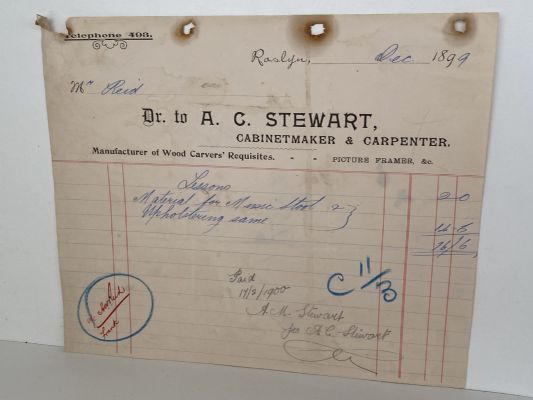 Telephone 493.
Roslyn, Dec 1899
Mr Reid
Dr. to A. C. STEWART,
CABINETMAKER & CARPENTER.
Manufacturer of Wood Carvers' Requisites. - - PICTURE FRAMER, &c.
Lessons 2 0
Material for Music Stool
Upholstering same 14 6
16/6
Paid
17/2/1900
A. M. Stewart
for A. C. Stewart
C 11/30